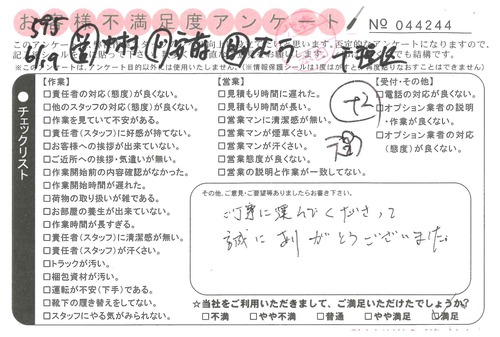 お客様不満足度アンケート
№ 044244
チェックリスト
【作業】
□責任者の対応(態度)が良くない。
□他のスタッフの対応(態度)が良くない。
□作業を見ていて不安がある。
□責任者(スタッフ)に好感が持てない。
□お客様への挨拶が出来ていない。
□ご近所への挨拶・気遣いが無い。
□作業開始前の内容確認がなかった。
□作業開始時間が遅れた。
□荷物の取り扱いが雑である。
□お部屋の養生が出来ていない。
□作業時間が長すぎる。
□責任者(スタッフ)に清潔感が無い。
□責任者(スタッフ)が汗くさい。
□トラックが汚い。
□梱包資材が汚い。
□運転が不安(下手)である。
□靴下の履き替えをしてない。
□スタッフにやる気がみられない。
【営業】
□見積もり時間に遅れた。
□見積もり時間が長い。
□営業マンに清潔感が無い。
□営業マンが煙草くさい。
□営業マンが汗くさい。
□営業態度が良くない。
□営業の説明と作業が一致してない。
【受付・その他】
□電話の対応が良くない。
□オプション業者の説明
・作業が良くない。
□オプション業者の対応
(態度)が良くない。
その他、ご意見・ご要望等ありましたらお書き下さい。
ご丁寧に運んでくださって
誠にありがとうございました。
☆当社をご利用いただきまして、ご満足いただけたでしょうか?
□不満 □やや不満 □普通 □やや満足 □満足